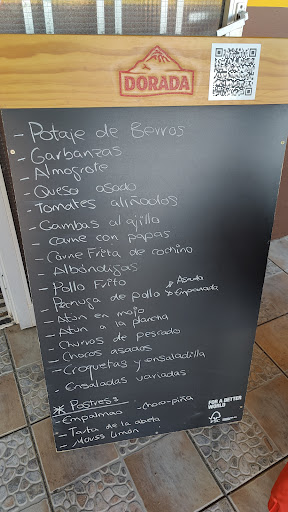 DORADA
- Potaje de Berros
- Garbanzas
- Almogrote
- Queso asado
- Tomates aliñados
- Gambas al ajillo
- carne con papas
- Carne Frita de cochino
- Albóndigas
- Pollo Frito
- Pechuga de pollo
Asada
Empanada
- Atún en mojo
- Atún a la plancha
- Churros de pescado
- Chocos asados
- Croquetas y ensaladilla
- Ensaladas variadas
* Postres
- Empalmao
- Choco-piña
- Tarta de la abela
- Mouss Limón
FOR A BETTER
WORLD
FSC